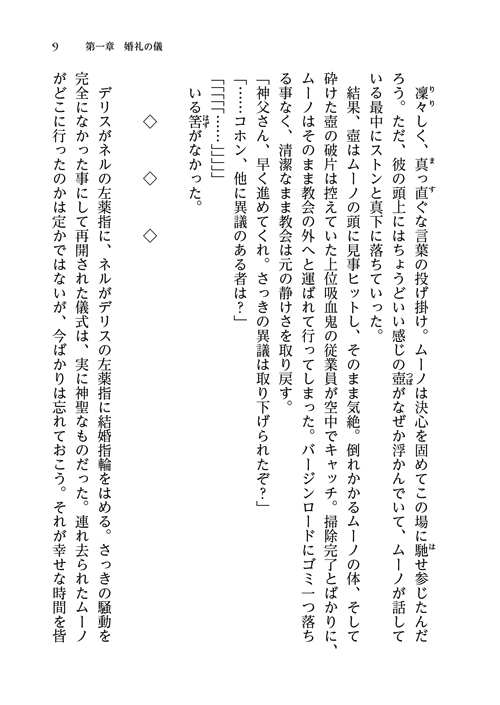 9　第一章　婚礼の儀
　凜々しく、真っ直ぐな言葉の投げ掛け。ムーノは決心を固めてこの場に馳せ参じたんだ
ろう。ただ、彼の頭上にはちょうどいい感じの壺がなぜか浮かんでいて、ムーノが話して
いる最中にストンと真下に落ちていった。
　結果、壺はムーノの頭に見事ヒットし、そのまま気絶。倒れかかるムーノの体、そして
砕けた壺の破片は控えていた上位吸血鬼の従業員が空中でキャッチ。掃除完了とばかりに、
ムーノはそのまま教会の外へと運ばれて行ってしまった。バージンロードにゴミ一つ落ち
る事なく、清潔なまま教会は元の静けさを取り戻す。
「神父さん、早く進めてくれ。さっきの異議は取り下げられたぞ？」
「……コホン、他に異議のある者は？」
「「「「……」」」」
　いる筈がなかった。
◇　◇　◇
　デリスがネルの左薬指に、ネルがデリスの左薬指に結婚指輪をはめる。さっきの騒動を
完全になかった事にして再開された儀式は、実に神聖なものだった。連れ去られたムーノ
がどこに行ったのかは定かではないが、今ばかりは忘れておこう。それが幸せな時間を皆